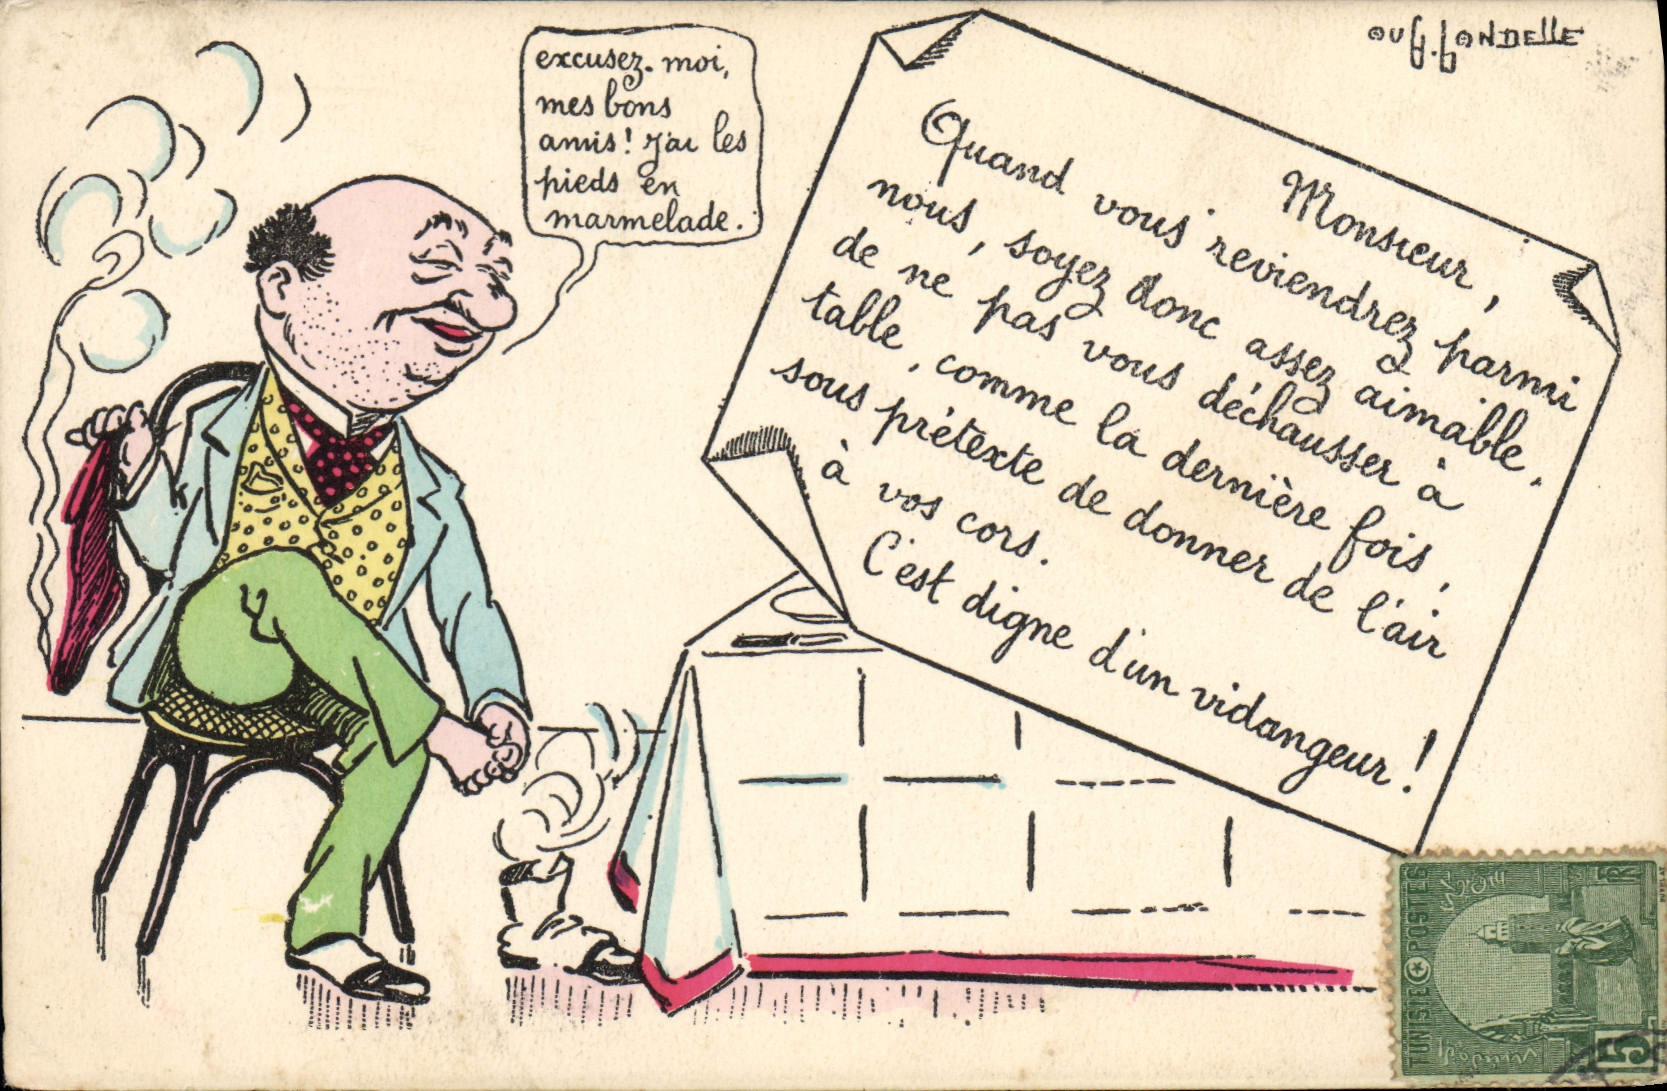 excusez-moi,
mes bons
amis! J'ai les
pieds en
marmelade.
AUG. GANDELLE
Monsieur,
Quand vous reviendrez parmi
nous, soyez donc assez aimable.
de ne pas vous déchausser à
table, comme la dernière fois,
sous prétexte de donner de l'air
à vos cors.
C'est digne d'un vidangeur!
TUNISIE POSTES
RF
5